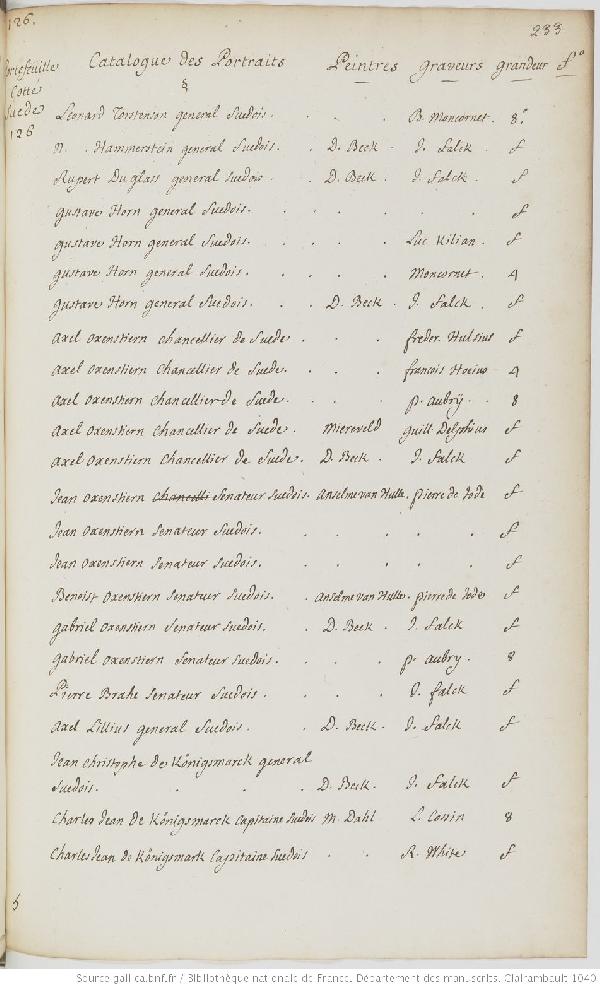 126.
233
Portefeuille Catalogue des Portraits Peintres graveurs grandeur fo
Cotte
Suede
126
Leonard Torstenson general Suedois. B. Moncornet. 8o
N. Hammerstein general Suedois. D. Beck. J. Falck. f
Rupert Duglass general Suedois D. Beck J. Falck. f
gustave Horn general Suedois. f
gustave Horn general Suedois. Luc Kilian. f
gustave Horn general Suedois. Moncornet. 4
gustave Horn general Suedois. D. Beck. J. Falck. f
Axel Oxenstiern Chancellier de Suede. freder. Hulsius f
Axel Oxenstiern Chancellier de Suede. francois Hoeius 4
Axel Oxenstiern Chancellier de Suede. p. aubrÿ. 8
Axel Oxenstiern Chancellier de Suede. Miereveld guill Delphius f
Axel Oxenstiern Chancellier de Suede. D. Beck. J. Falck f
Jean Oxenstiern Chancelli Senateur Suedois. Anselme van Hulle. pierre de Jode f
Jean Oxenstiern Senateur Suedois. f
Jean Oxenstiern Senateur Suedois. f
Benoist Oxenstiern Senateur Suedois. Anselme van Hulle. pierre de Jode f
gabriel Oxenstiern Senateur Suedois. D. Beck J. Falck f
gabriel Oxenstiern Senateur Suedois. p. aubry. 8
Pierre Brahe Senateur Suedois. J. falck f
Axel Lillius general Suedois. D. Beck. J. Falck f
Jean Christophe de Königsmarck general
Suedois. D. Beck. J. Falck f
Charles Jean de Königsmarck Capitaine Suedois M. Dahl L. Cossin 8
Charles Jean de Königsmark Capitaine Suedois R. White f
5
Source gallica.bnf.fr / Bibliothèque nationale de France. Département des manuscrits. Clairambault 1040